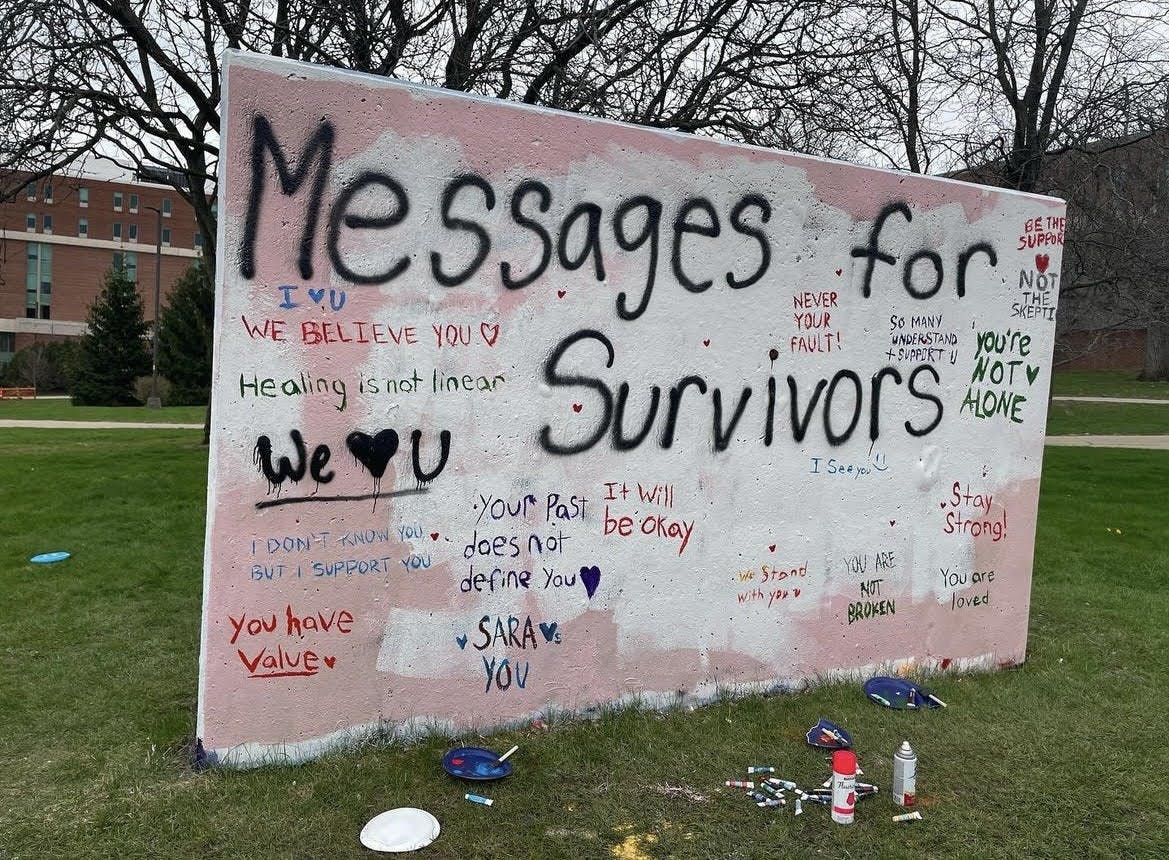 Messages for
Survivors
I ♥ U
WE BELIEVE YOU ♡
Healing is not linear
We ♥ U
I DON'T KNOW YOU,
BUT I SUPPORT YOU
You have
Value
Your Past
does not
define You
SARA ♥s
YOU
It Will
be okay
NEVER
YOUR
FAULT!
SO MANY
UNDERSTAND
+ SUPPORT U
BE THE
SUPPOR
NOT
THE
SKEPTI
you're
NOT
ALONE
I See you
Stay
Strong!
We Stand
with you
YOU ARE
NOT
BROKEN
You are
loved